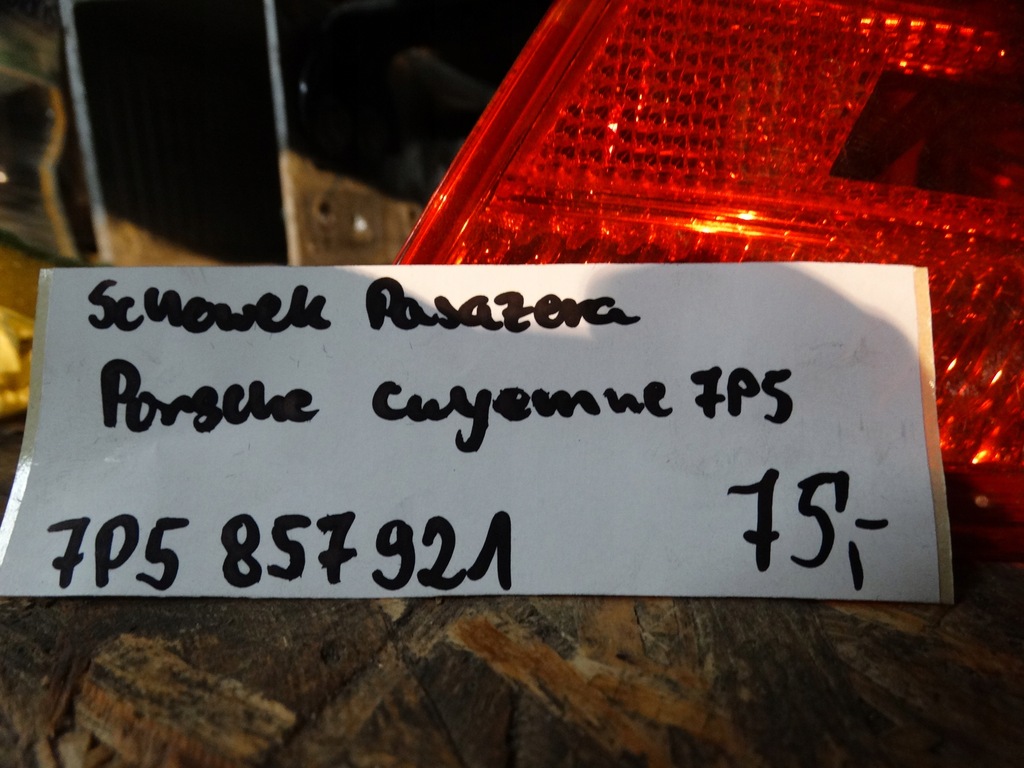 Schowek Pasażera
Porsche cayenne 7P5
7P5 857 921
75,-